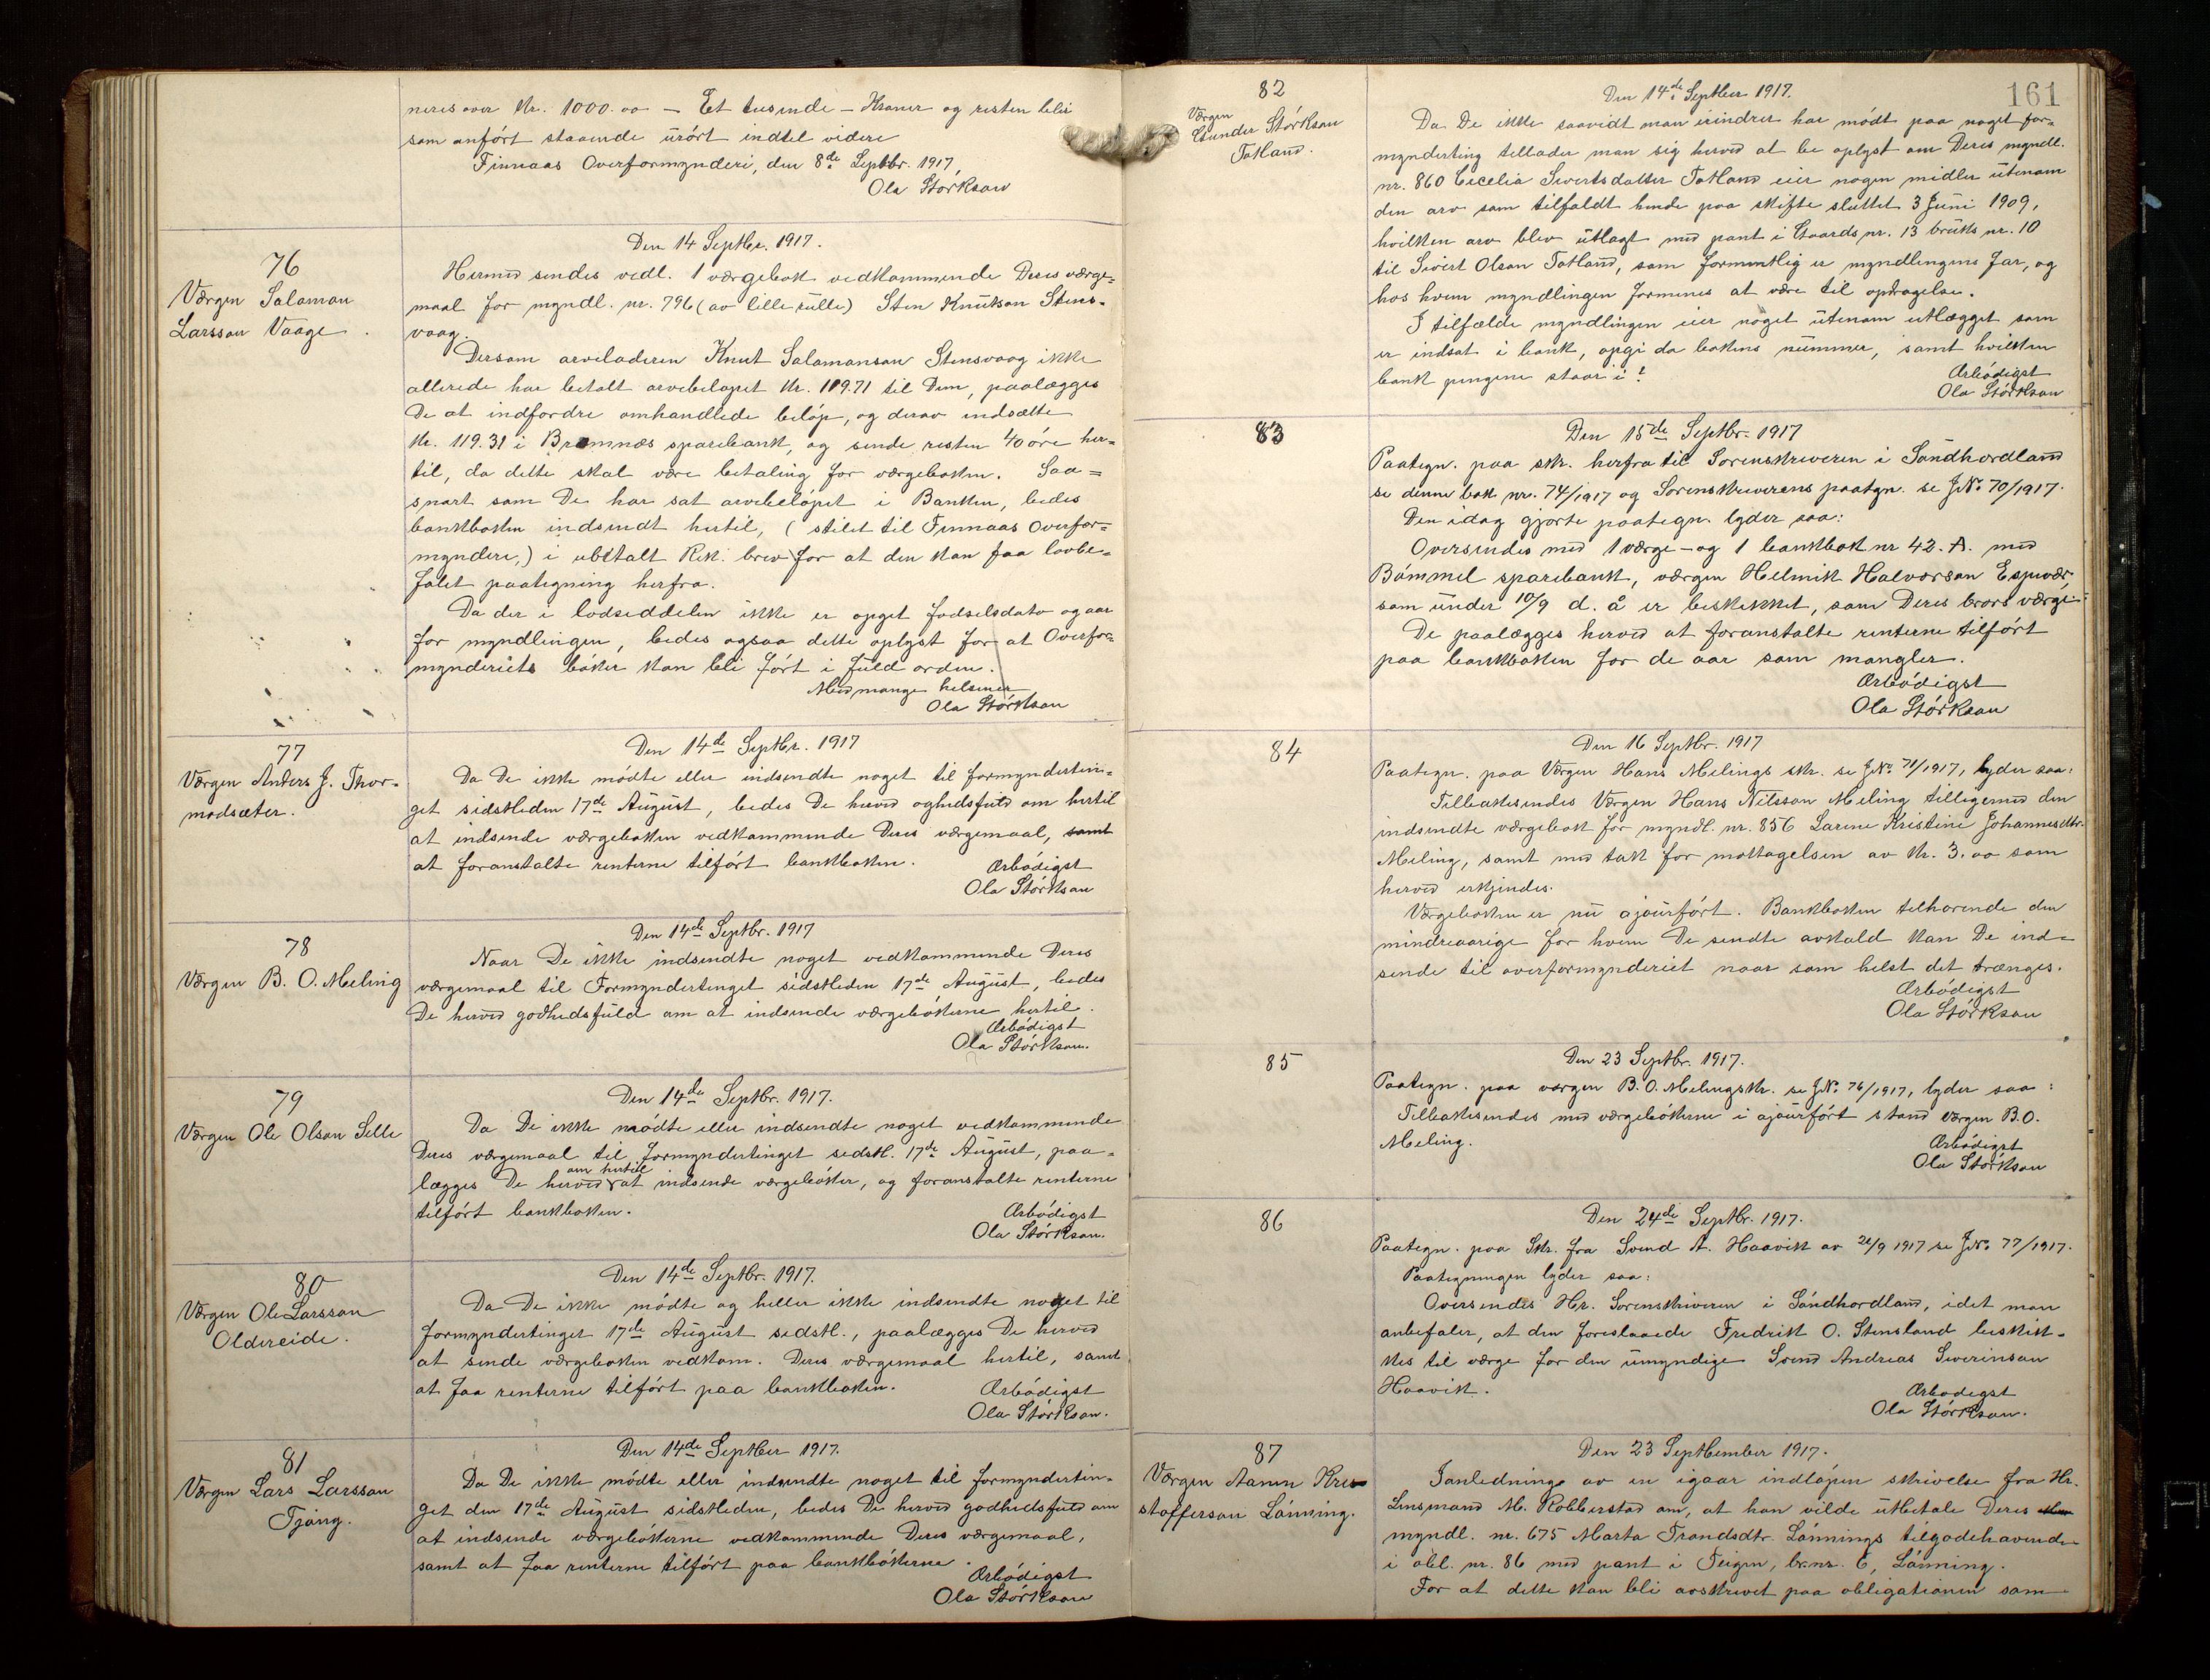 neres over Kr. 1000.oo — Et tusinde — Kroner og resten blir
som anført staaende urørt indtil videre
Finnaas Overformynderi, den 8de Septbr. 1917,
Ola Størkson
76
Værgen Salamon
Larsson Vaage.
Den 14 Septbr. 1917.
Hermed sendes vedl. 1 værgebok vedkommende Deres værge=
maal for myndl. nr. 796 (av lille rulle) Sten Knutson Stens-
vaag.
Dersom arveladeren Knut Salamonson Stensvaag ikke
allerede har betalt arvebeløpet Kr. 119.71 til Dem, paalægges
De at indfordre omhandlede beløp, og derav indsætte
Kr. 119.31 i Bremnæs sparebank, og sende resten 40 øre her=
til, da dette skal være betaling for værgeboken. Saa=
snart som De har sat arvebeløpet i Banken, bedes
bankboken indsendt hertil, (stilet til Finnaas Overfor=
mynderi,) i ubetalt Rek. brev for at den kan faa lovbe=
falet paategning herfra.
Da der i lodseddelen ikke er opget fødselsdato og aar
for myndlingen, bedes ogsaa dette oplyst for at Overfor=
mynderiets bøker kan bli ført i fuld orden.
Med mange helsener
Ola Størkson
77
Værgen Anders J. Thor-
modsæter.
Den 14de Septbr. 1917
Da De ikke mødte eller indsendte noget til formyndertin=
get sidstleden 17de August, bedes De herved oghedsfuld om hertil
at indsende værgeboken vedkommende Deres værgemaal, samt
at foranstalte renterne tilført bankboken.
Ærbødigst
Ola Størkson
78
Værgen B. O. Meling
Den 14de Septbr. 1917
Naar De ikke indsendte noget vedkommende Deres
værgemaal til Formyndertinget sidstleden 17de August, bedes
De herved godhedsfuld om at indsende værgebøkerne hertil.
Ærbødigst
Ola Størkson.
79
Værgen Ole Olson Selle
Den 14de Septbr. 1917.
Da De ikke mødte eller indsendte noget vedkommende
Deres værgemaal til Formyndertinget sidstl. 17de August, paa=
om hertil
lægges De herved at indsende værgebøker, og foranstalte renterne
tilført bankboken.
Ærbødigst
Ola Størkson.
80
Værgen Ole Larsson
Oldereide.
Den 14de Septbr. 1917.
Da De ikke mødte og heller ikke indsendte noget til
formyndertinget 17de August sidstl., paalægges De herved
at sende værgeboken vedkom. Deres værgemaal hertil, samt
at faa renterne tilført paa bankboken.
Ærbødigst
Ola Størkson.
81
Værgen Lars Larsson
Tjong.
Den 14de Septber 1917.
Da De ikke mødte eller indsendte noget til formyndertin=
get den 17de August sidstleden, bedes De herved godhedsfuld om
at indsende værgebøkerne vedkommende Deres værgemaal,
samt at faa renterne tilført paa bankbøkerne.
Ærbødigst
Ola Størkson
161
82
Værgen
Gunder Størkson
Totland.
Den 14de Septber 1917.
Da De ikke saavidt man erindrer har mødt paa noget for=
mynderting tillader man sig herved at be oplyst om Deres myndl.
nr. 860 Cecelia Sivertsdatter Totland eier nogen midler utenom
den arv som tilfaldt hende paa skifte sluttet 3 Juni 1909,
hvilken arv blev utlagt med pant i Gaards nr. 13 bruks nr. 10
til Sivert Olson Totland, som formentlig er myndlingens far, og
hos hvem myndlingen formenes at være til opdragelse.
I tilfælde myndlingen eier noget utenom utlægget som
er indsat i bank, opgi da bokens nummer, samt hvilken
bank pengene staar i?
Ærbødigst
Ola Størkson
83
Den 15de Septbr. 1917
Paategn. paa skr. herfra til Sorenskriveren i Søndhordland
se denne bok nr. 74/1917 og Sorenskriverens paategn. se JNo 70/1917.
Den idag gjorte paategn. lyder saa:
Oversendes med 1 værge- og 1 bankbok nr 42. A. med
Bømmel sparebank, værgen Helmik Halvorson Espevær,
som under 10/9 d. å er beskikket, som Deres brors værge.
De paalægges herved at foranstalte renterne tilført
paa bankboken for de aar som mangler.
Ærbødigst
Ola Størkson
84
Den 16 Septbr. 1917
Paategn. paa Værgen Hans Melings skr. se JNo 71/1917, lyder saa:
Tilbakesendes Værgen Hans Nilsson Meling tilligemed den
indsendte værgebok for myndl. nr. 856 Larine Kristine Johannesdtr.
Meling, samt med tak for mottagelsen av Kr. 3.oo som
herved erkjendes.
Værgeboken er nu ajourført. Bankboken tilhørende den
mindreaarige for hvem De sendte avkald kan De ind=
sende til overformynderiet naar som helst det trænges.
Ærbødigst
Ola Størkson
85
Den 23 Septbr. 1917.
Paategn. paa værgen B. O. Melings skr. se JNo 76/1917, lyder saa:
Tilbakesendes med værgebøkerne i ajourført stand værgen B. O.
Meling.
Ærbødigst
Ola Størkson
86
Den 24de Septbr. 1917.
Paategn. paa Skr. fra Svend A. Haavik av 21/9 1917 se JNo 77/1917.
Paategningen lyder saa:
Oversendes Hr. Sorenskriveren i Søndhordland, idet man
anbefaler, at den foreslaaede Fredrik O. Stensland beskik-
kes til værge for den umyndige Svend Andreas Sverinson
Haavik.
Ærbødigst
Ola Størkson.
87
Værgen Aamen Kris-
stofferson Lønning.
Den 23 September 1917.
Ianledning av en igaar indløpen skrivelse fra Hr.
Lensmand M. Robberstad om, at han vilde utbetale Deres
myndl. nr. 675 Marta Trondsdtr. Lønnings tilgodehavende
i obl. nr. 86 med pant i Teigen, br.nr. 6, Lønning.
For at dette kan bli avskrevet paa obligationen som